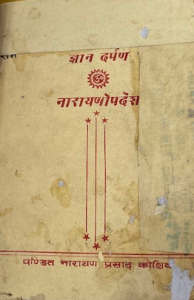 ज्ञान दर्पण
ॐ
नारायणोपदेश
पण्डित नारायण प्रसाद कौशिक